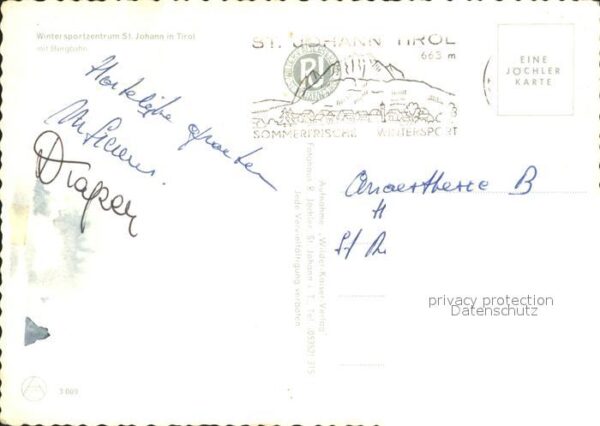 Wintersportzentrum St. Johann in Tirol
mit Bergbahn
ST. JOHANN TIROL
663 m
SOMMERFRISCHE WINTERSPORT
EINE
JÖCHLER
KARTE
Hartelijke groeten
Draper
Anaesthesie B
H
St R
Aufnahme: "Wilder-Kaiser-Verlag"
Fotohaus R. Jöchler, St. Johann i. T., Tel.
Jede Vervielfältigung verboten
privacy protection
Datenschutz
3 009